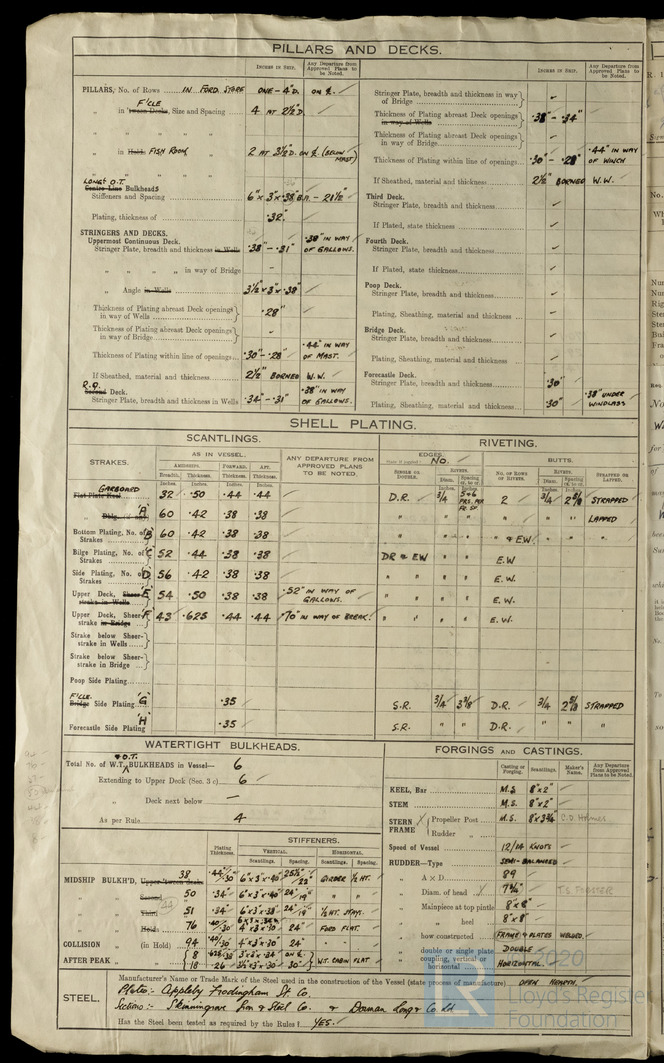 PILLARS AND DECKS.
INCHES IN SHIP.
Any Departure from Approved Plans to be Noted.
PILLARS, No. of Rows ..... IN FORD. STORE ONE - 4"D. ON ℄.
F'CLE
„ in 'tween Decks, Size and Spacing ...... 4 AT 2½"D.
„ in Hold. FISH ROOM 2 AT 3½"D. ON ℄ (BELOW MAST)
LONGL O.T.
Centre Line Bulkheads
Stiffeners and Spacing ........ 6"x 3"x .38" B.A. - 28½"
Plating, thickness of ........ .32"
STRINGERS AND DECKS.
Uppermost Continuous Deck.
Stringer Plate, breadth and thickness in Wells .38" - .31" .38" IN WAY OF GALLOWS.
„ „ „ „ in way of Bridge -
„ Angle in Wells ........ 3½"x 3"x .38"
Thickness of Plating abreast Deck openings in way of Wells ........ .28"
Thickness of Plating abreast Deck openings in way of Bridge ........
Thickness of Plating within line of openings... .30" - .28" .44" IN WAY OF MAST.
If Sheathed, material and thickness ........ 2½" BORNEO W.W.
R.Q.
Second Deck.
Stringer Plate, breadth and thickness in Wells .34" - .31" .38" IN WAY OF GALLOWS.
INCHES IN SHIP.
Any Departure from Approved Plans to be Noted.
Stringer Plate, breadth and thickness in way of Bridge ........
Thickness of Plating abreast Deck openings in way of Wells ........ .38" - .34"
Thickness of Plating abreast Deck openings in way of Bridge ........
Thickness of Plating within line of openings... .30" - .28" .44" IN WAY OF WINCH
If Sheathed, material and thickness ........ 2½" BORNEO W.W.
Third Deck.
Stringer Plate, breadth and thickness ........
If Plated, state thickness ........
Fourth Deck.
Stringer Plate, breadth and thickness ........
If Plated, state thickness ........
Poop Deck.
Stringer Plate, breadth and thickness ........
Plating, Sheathing, material and thickness ........
Bridge Deck.
Stringer Plate, breadth and thickness ........
Plating, Sheathing, material and thickness ........
Forecastle Deck.
Stringer Plate, breadth and thickness ........ .30"
Plating, Sheathing, material and thickness ...... .30" .38" UNDER WINDLASS
SHELL PLATING.
SCANTLINGS.
RIVETING.
STRAKES.
AS IN VESSEL.
AMIDSHIPS. FORWARD. AFT.
Breadth. Thickness. Thickness. Thickness.
Inches. Inches. Inches. Inches.
ANY DEPARTURE FROM APPROVED PLANS TO BE NOTED.
EDGES.
State if joggled? No.
SINGLE OR DOUBLE.
RIVETS.
Diam. Spacing
BUTTS.
NO. OF ROWS OF RIVETS.
RIVETS.
Diam. Spacing
STRAPPED OR LAPPED.
GARBOARD
Flat Plate Keel 32 .50 .44 .44 D.R. 3/4 2 3/4 2 5/8 STRAPPED
„ 'A' 60 .42 .38 .38 „ „ „ „ „ LAPPED
Bottom Plating, No. of Strakes 'B' 60 .42 .38 .38 „ „ „ „ & EW „ „ „
Bilge Plating, No. of Strakes 'C' 52 .44 .38 .38 DR & EW „ „ E.W
Side Plating, No. of Strakes 'D' 56 .42 .38 .38 „ „ „ E.W.
Upper Deck, Sheer-strake in Wells 'E' 54 .50 .38 .38 .52" IN WAY OF GALLOWS. „ „ „ E.W.
Upper Deck, Sheer-strake in Bridge 'F' 43 .625 .44 .44 .70" IN WAY OF BREAK. „ „ „ E.W.
Strake below Sheer-strake in Wells
Strake below Sheer-strake in Bridge
Poop Side Plating
F'CLE.
Bridge Side Plating 'G' .35 S.R. 3/4 3 3/8 D.R. 3/4 2 5/8 STRAPPED
Forecastle Side Plating 'H' .35 S.R. „ „ D.R. „ „ „
WATERTIGHT BULKHEADS.
& O.T.
Total No. of W.T. BULKHEADS in Vessel— 6
Extending to Upper Deck (Sec. 3 c) 6
„ Deck next below —
As per Rule 4
Plating Thickness.
STIFFENERS.
VERTICAL. HORIZONTAL.
Scantlings. Spacing. Scantlings. Spacing.
MIDSHIP BULKH'D, Upper 'tween decks 38 .44/.30 6"x3"x.40" 25½" 22" GIRDER ½ HT.
„ Second 50 .34" 6"x3"x.40" 24" 19" „ „
„ Third 51 .34" 6"x3"x.38" 24" 19" ½ HT. STAYS.
„ Holds 76 .40/.30 4"x3"x.30" 24" FORD FLAT.
COLLISION „ (in Hold) 94 .40/.30 4"x3"x.30" 24" „
AFTER PEAK „ { 8 3"x3"x.34" ON ℄.
18 .26 3½"x3"x.30" 30" W.T. CABIN FLAT
FORGINGS AND CASTINGS.
Casting or Forging. Scantlings. Maker's Name. Any Departure from Approved Plans to be Noted.
KEEL, Bar ........ M.S. 8"x2"
STEM ........ M.S. 8"x2"
STERN FRAME { Propeller Post ... M.S. 8"x3¾" C.D. Holmes
Rudder „
Speed of Vessel ........ 12/14 KNOTS
RUDDER—Type ........ SEMI-BALANCED
„ A x D ........ 89
„ Diam. of head ........ 7¾" T.S. FORSTER
„ Mainpiece at top pintle 8"x8"
„ „ heel ... 8"x8"
„ how constructed ...... FRAME & PLATES WELDED.
„ double or single plate DOUBLE
„ coupling, vertical or horizontal ........ HORIZONTAL.
STEEL.
Manufacturer's Name or Trade Mark of the Steel used in the construction of the Vessel (state process of manufacture) OPEN HEARTH.
Plates:- Appleby Frodingham St. Co.
Sections:- Skinningrove Iron & Steel Co. & Dorman Long & Co Ld
Has the Steel been tested as required by the Rules? YES.
2020
Lloyd's Register
Foundation